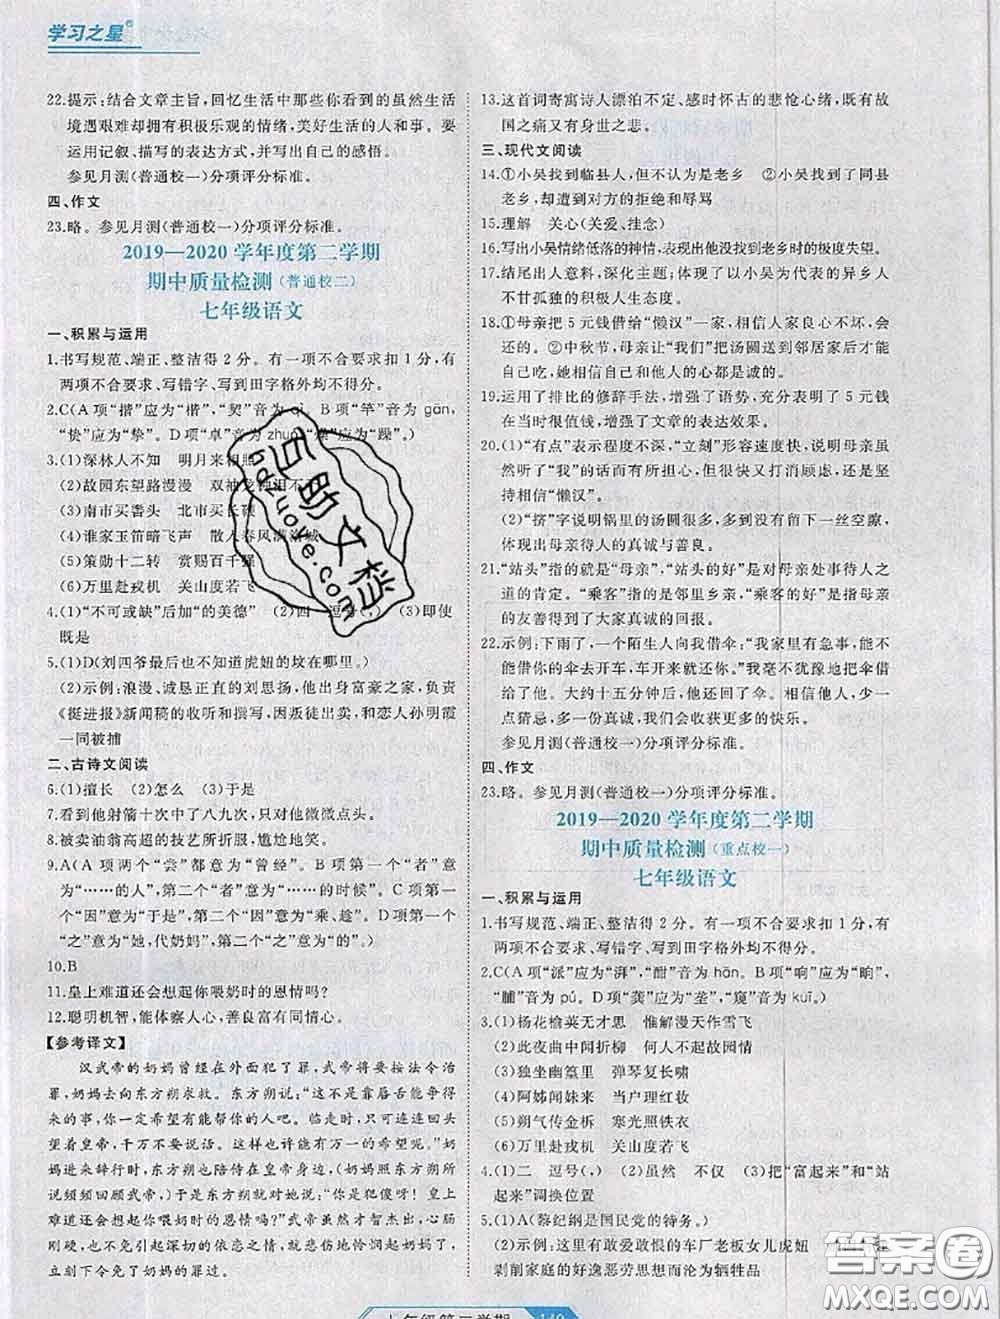 学习之星
22.提示:结合文章主旨,回忆生活中那些你看到的虽然生活
境遇艰难却拥有积极乐观的情绪,美好生活的人和事。要
运用记叙、描写的表达方式,并写出自己的感悟。
参见月测(普通校一)分项评分标准。
四、作文
23.略。参见月测(普通校一)分项评分标准。
2019—2020学年度第二学期
期中质量检测(普通校二)
七年级语文
一、积累与运用
1.书写规范、端正、整洁得2分。有一项不合要求扣1分,有
两项不合要求、写错字、写到田字格外均不得分。
2.C(A项“揩”应为“锴”,“契”音为qì。B项“竿”音为gān,
“贽”应为“挚”。D项“卓”音为zhuó,“燥”应为“躁”。)
3.(1)深林人不知　明月来相照
(2)故园东望路漫漫　双袖龙钟泪不干
(3)南市买辔头　北市买长鞭
(4)谁家玉笛暗飞声　散入春风满洛城
(5)策勋十二转　赏赐百千强
(6)万里赴戎机　关山度若飞
4.(1)“不可或缺”后加“的美德”　(2)四　逗号(,)　(3)即使
既是
5.(1)D(刘四爷最后也不知道虎妞的坟在哪里。)
(2)示例:浪漫、诚恳正直的刘思扬,他出身富豪之家,负责
《挺进报》新闻稿的收听和撰写,因叛徒出卖,和恋人孙明霞
一同被捕
二、古诗文阅读
6.(1)擅长　(2)怎么　(3)于是
7.看到他射箭十次中了八九次,只不过对他微微点头。
8.被卖油翁高超的技艺所折服,尴尬地笑。
9.A(A项两个“尝”都意为“曾经”。B项第一个“者”意
为“……的人”,第二个“者”意为“……的时候”。C项第
一个“因”意为“于是”,第二个“因”意为“乘、趁”。D项第一
个“之”意为“她,代奶妈”,第二个“之”意为“的”。)
10.B
11.皇上难道还会想起你喂奶时的恩情吗?
12.聪明机智,能体察人心,善良富有同情心。
【参考译文】
汉武帝的奶妈曾经在外面犯了罪,武帝将要按法令治
罪,奶妈去向东方朔求救。东方朔说:“这不是靠唇舌能争得
来的事,你一定希望有能帮你的人。临走时,只可连连回头
望着皇帝,千万不要说话。这样也许能有万一的希望呢。”奶
妈进来辞行时,东方朔也陪侍在皇帝身边,(奶妈照东方朔所
说频频回顾武帝,)于是东方朔就对她说:“你是犯傻呀!皇上
难道还会想起你喂奶时的恩情吗?”武帝虽然才智杰出,心肠
刚硬,也不免引起深切的依恋之情,就悲伤地怜悯起奶妈了,
立刻下令免了奶妈的罪过。
13.这首词寄寓诗人漂泊不定、感时怀古的悲怆心绪,既有故
国之痛又有身世之悲。
三、现代文阅读
14.①小吴找到临县人,但不认为是老乡　②小吴找到了同县
老乡,却遭到对方的拒绝和辱骂
15.理解　关心(关爱、挂念)
16.写出小吴情绪低落的神情,表现出他没找到老乡时的极度失望。
17.结尾出人意料,深化主题;体现了以小吴为代表的异乡人
不甘孤独的积极人生态度。
18.①母亲把5元钱借给“懒汉”一家,相信人家良心不会受
损。②中秋节,母亲让“我们”把汤圆送到邻居家后才能
自己吃,她相信自己和其他人的心都是诚的。
19.运用了排比的修辞手法,增强了语势,充分表现了5元钱
在当时很值钱,增强了文章的表达效果。
20.(1)“有点”表示程度不深,“立刻”形容速度快,说明母亲虽
然听了“我”的话而有所担心,但很快又打消顾虑,还是坚
持相信“懒汉”。
(2)“挤”字说明锅里的汤圆很多很多,没留下一丝空隙,
体现出母亲待人的真诚与善良。
21.“站头”指的是“母亲”,“站头的好”是对母亲处事待人之
道的肯定。“乘客”指的是邻里乡亲,“乘客的好”是指母亲
的友善得到了大家真诚的回报。
22.示例:下雨了,一个陌生人向我借伞:“我家里有急事,能不
能借你的伞去开车,车开来就还你。”我毫不犹豫地把伞借
给了他。大约十五分钟后,他还回了伞。相信他人,少一
点猜忌,多一份真诚,我们会收获更多的快乐。
参见月测(普通校一)分项评分标准。
四、作文
23.略。参见月测(普通校一)分项评分标准。
2019—2020学年度第二学期
期中质量检测(重点校一)
七年级语文
一、积累与运用
1.书写规范、端正、整洁得2分。有一项不合要求扣1分,有
两项不合要求、写错字、写到田字格外均不得分。
2.C(A项“派”应为“湃”,“酣”音为hān。B项“响”应为“晌”,
“脯”音为pú。D项“龚”应为“垄”,“窥”音为kuī。)
3.(1)杨花榆荚无才思　惟解漫天作雪飞
(2)此夜曲中闻折柳　何人不起故园情
(3)独坐幽篁里　弹琴复长啸
(4)阿姊闻妹来　当户理红妆
(5)朔气传金柝　寒光照铁衣
(6)万里赴戎机　关山度若飞
4.(1)二　逗号(,)　(2)虽然　不仅　(3)把“富起来”和“站
起来”调换位置
5.(1)A(黎纪纲是国民党的特务。)
(2)示例:这里有敢爱敢恨的车厂老板女儿虎妞
剥削家庭的好逸恶劳思想而沦为牺牲品
七年级第二学期　149
百助文档
hdzuoye.com
答案卷
MXQE.COM